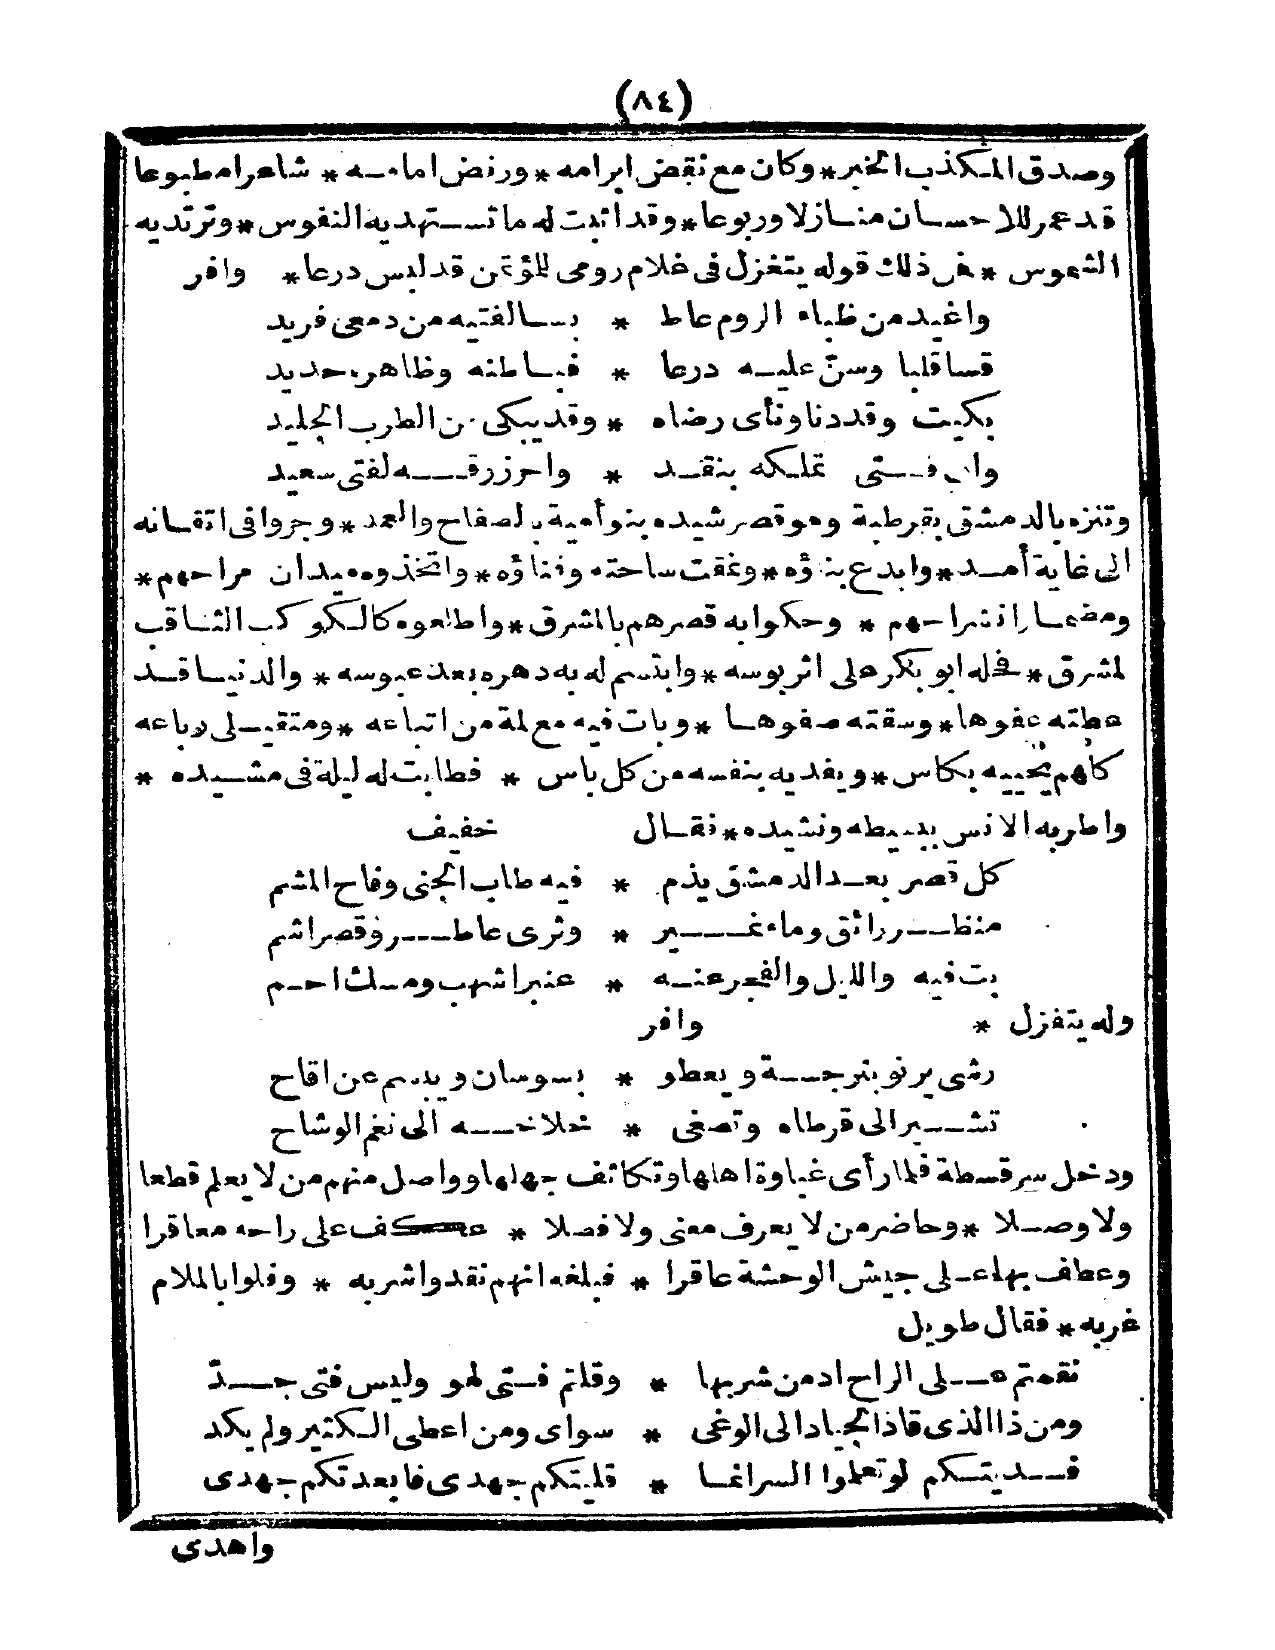 (٨٤)
وصدق المكذب الخبر* وكان مع نقض ابرامه* ورفض امامه* شاعرا مطبوعا
قد عمر للاحسان منازلا وربوعا* وقد اثبت له ما تستهديه النفوس* وترتديه
الشموس* فمن ذلك قوله يتغزل فى غلام رومى للمؤتمن قد لبس درعا* وافر
واغيد من ظباء الروم عاط * بسالفتيه من دمعى فريد
قسا قلبا وسن عليه درعا * فباطنه وظاهره حديد
بكيت وقد دنا ونأى رضاه * وقد يبكى من الطرب الجليد
وان فتى تملكه بنقد * واحرز رقه لفتى سعيد
وتنزه بالدمشق بقرطبة وهو قصر شيده بنو أمية بالصفاح والعمد* وجروا فى اتقانه
الى غاية أمد* وابدع بناؤه* ونمقت ساحته وفناؤه* واتخذوه ميدان مراحهم*
ومضمارا نشراحهم * وحكوا به قصرهم بالمشرق* واطلعوه كالكوكب الثاقب
لمشرق* فحله ابو بكر على اثر بوسه* وابتسم له به دهره بعد عبوسه* والدنيا قد
عطته عفوها* وسقته صفوها* وبات فيه مع لمة من اتباعه* ومتفيلى رباعه
كلهم يحييه بكاس* ويفديه بنفسه من كل باس* فطابت له ليلة فى مشيده *
واطربه الانس ببسيطه ونشيده* فقال خفيف
كل قصر بعد الدمشق يذم * فيه طاب الجنى وفاح المشم
منظر رائق وماء نمير * وثرى عاطر وقصر اشم
بت فيه والليل والفجر عنه * عنبر اشهب ومسك احم
وله يتغزل * وافر
رشى يرنو بنرجسة ويعطو * بسوسان ويبسم عن اقاح
تشير الى قرطاه وتصغى * خلاخله الى نغم الوشاح
ودخل سرقسطة فلما رأى غباوة اهلها وتكاثف جهلها وواصل منهم من لا يعلم قطعا
ولا وصلا* وحاضر من لا يعرف معنى ولا فصلا* عكف على راحه معاقرا
وعطف بها على جيش الوحشة عاقرا* فبلغه انهم نقدوا شربه* وفلوا بالملام
غربه* فقال طويل
نقمتم على الراح ادمن شربها * وقلتم فتى لهو وليس فتى جد
ومن ذا الذى قاد الجياد الى الوغى * سواى ومن اعطى الكثير ولم يكد
فديتكم لو تعلموا السر انما * قليتكم جهدى فابعدتكم جهدى
واهدى